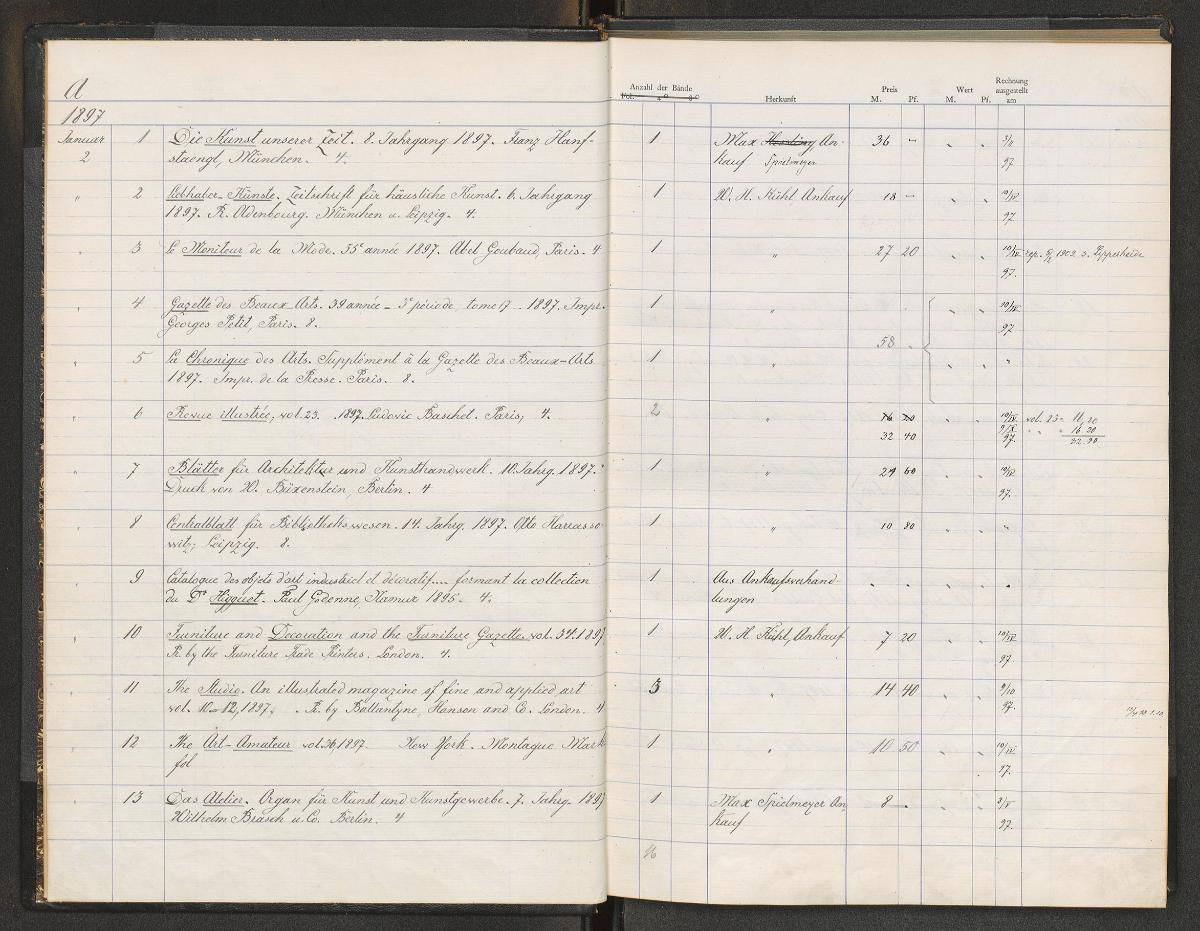 A
Anzahl der Bände
Vol. 4° 8°
Herkunft
Preis
M. Pf.
Wert
M. Pf.
Rechnung
ausgestellt
am
1897
Januar 1 Die Kunst unserer Zeit. 8. Jahrgang 1897. Franz Hanf- 1 Max Hessling An- 36 –
2 staengl, München. 4. kauf Spielmeyer 97.
" 2 Liebhaber-Künste. Zeitschrift für häusliche Kunst. 6. Jahrgang 1 W. H. Kühl Ankauf 18 – 10/IV
1897. R. Oldenbourg. München u. Leipzig. 4. 97.
" 3 Le Moniteur de la Mode. 55e année 1897. Abel Goubaud, Paris. 4 1 " 27 20 10/IV rep. 1902 s. Lipperheide
97.
" 4 Gazette des Beaux-Arts. 39 année – 3e période, tome 17 – 1897. Impr. 1 " 10/IV
Georges Petit, Paris. 8. 97
58 "
" 5 La Chronique des Arts. Supplément à la Gazette des Beaux-Arts 1 "
1897. Impr. de la Presse. Paris. 8.
" 6 Revue illustrée, vol. 23. 1897. Ludovic Baschet. Paris, 4. 2 " 16 20 10/IV vol. 23 =
32 40 9/IX 97. " " 16 20
" 7 Blätter für Architektur und Kunsthandwerk. 10. Jahrg. 1897. 1 " 21 60 10/IV
Druck von W. Büxenstein, Berlin. 4 97.
" 8 Centralblatt für Bibliothekswesen. 14. Jahrg. 1897. Otto Harrasso 1 " 10 80 "
witz, Leipzig. 8.
" 9 Catalogue des objets d'art industriel et décoratif.... formant la collection 1 Aus Ankaufsverhand-
du Dr Higguet. Paul Godenne, Namur 1895. 4. lungen
" 10 Furniture and Decoration and the Furniture Gazette. vol. 34. 1897 1 W. H. Kühl, Ankauf 7 20 10/IV
Pr. by the Furniture Trade Printers. London. 4. 97.
" 11 The Studio. An illustrated magazine of fine and applied art 3 " 14 40 9/10
vol. 10–12, 1897. Pr. by Ballantyne, Hanson and Co. London. 4 97.
" 12 The Art-Amateur vol. 36, 1897. New York. Montague Marks 1 " 10 50 10/IV
fol 97.
" 13 Das Atelier. Organ für Kunst und Kunstgewerbe. 7. Jahrg. 1897 1 Max Spielmeyer An- 8 – 3/V
Wilhelm Brasch u. Co. Berlin. 4 kauf 97.
16